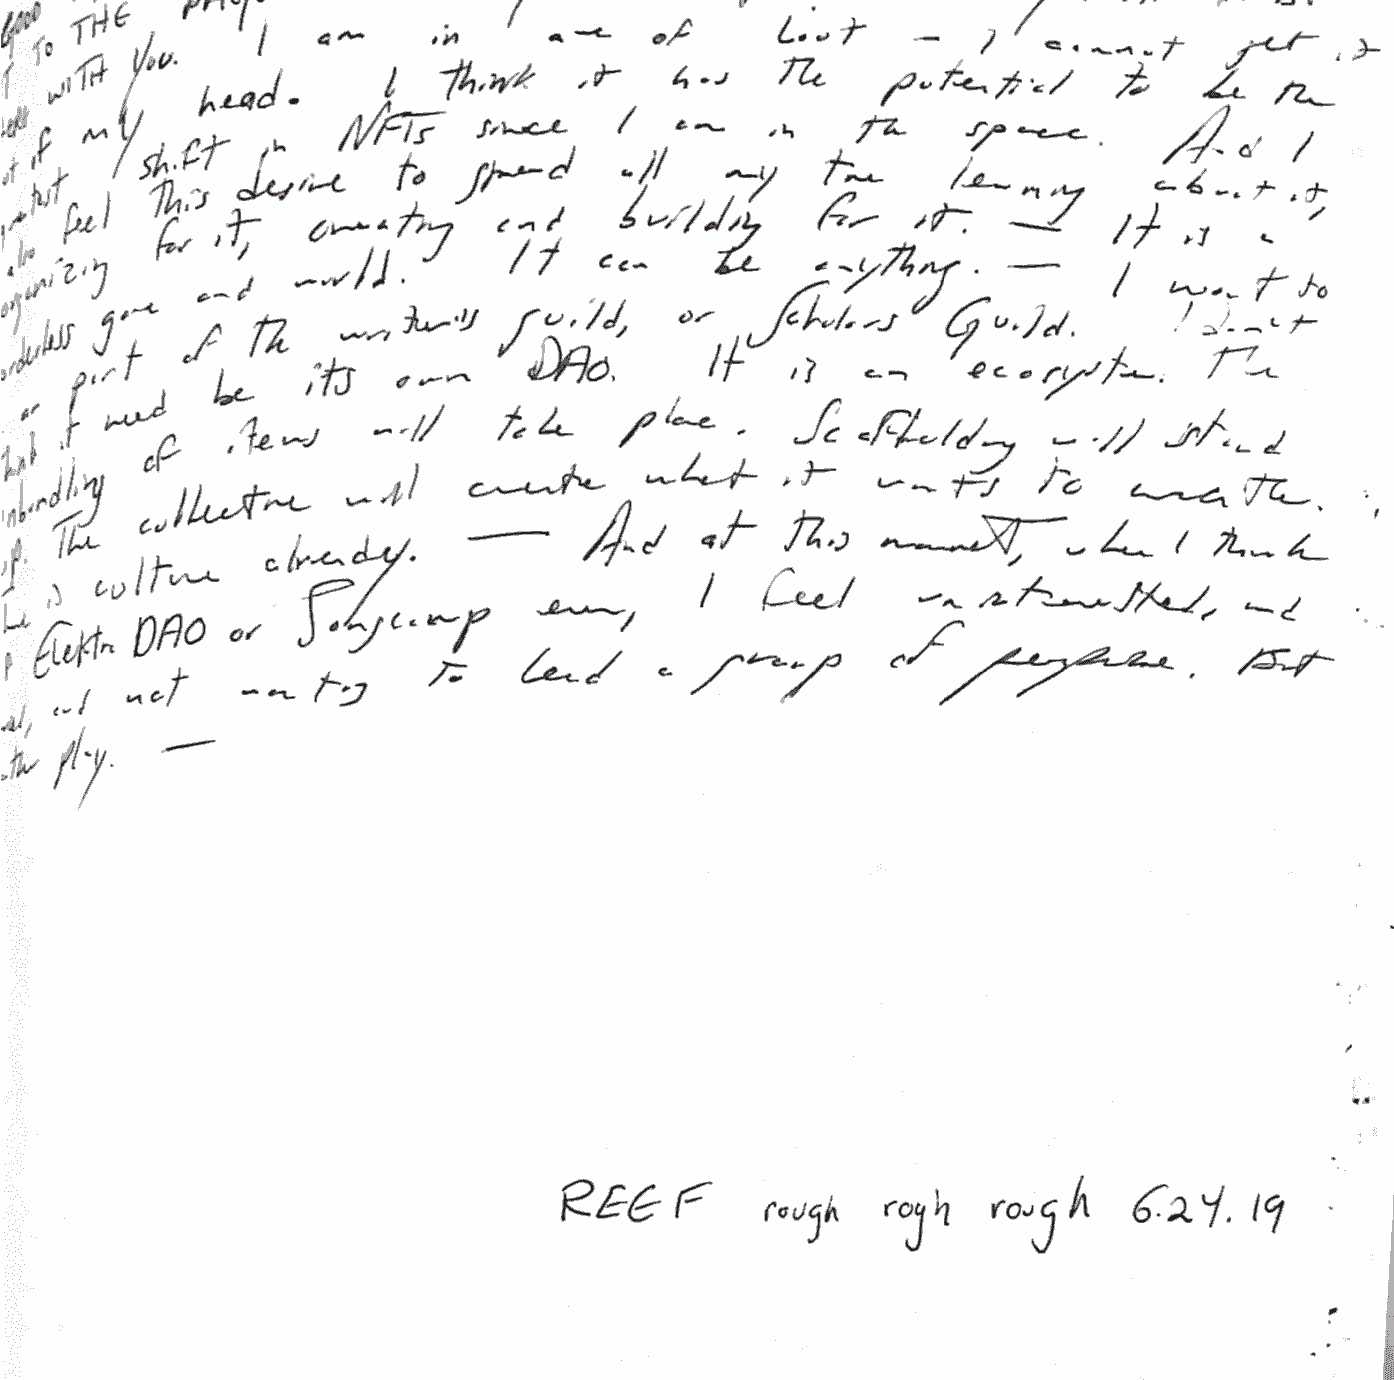 GOOD
TO THE
WITH YOU. I am in awe of Loot – I cannot get it
of my head. I think it has the potential to be the
shift in NFTs since I am in the space. And I
also feel this desire to spend all my time learning about it,
organizing for it, creating and building for it. — It is a
borderless game and world. It can be anything. — I want to
or part of the writer's guild, or Scholars Guild. I don't
think it need be its own DAO. It is an ecosystem. The
unbundling of items will take place. Scaffolding will stand
up. The collective will create what it wants to create.
is culture already. — And at this moment, when I think
Elektra DAO or Songcamp even, I feel uninterested, and
and not wanting to lead a group of people. But
play. —
REEF rough rogh rough 6.24.19